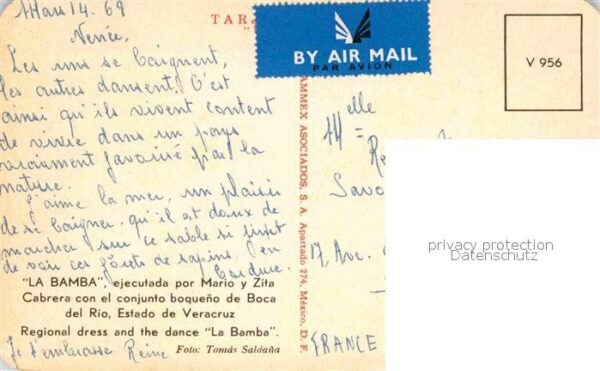 Mars 14. 69
TAR
BY AIR MAIL
PAR AVION
V 956
Les uns se baignent,
les autres dansent. C'est
ainsi qu'ils vivent content
de vivre dans un pays
vraiment favorisé par la
nature.
J'aime la mer, un plaisir
de se baigner, qu'il est doux de
marcher sur ce sable si
de voir ces forêts de sapins, en
bordure.
"LA BAMBA", ejecutada por Mario y Zita
Cabrera con el conjunto boqueño de Boca
del Río, Estado de Veracruz
Regional dress and the dance "La Bamba".
Je t'embrasse Reine
Foto: Tomás Saldaña
AMMEX ASOCIADOS, S. A. Apartado 274, México, D. F.
Melle
Savo
17, Ave.
FRANCE
privacy protection
Datenschutz